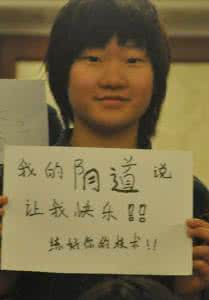 我的阴道说
让我快乐!!
练好你的技术!!